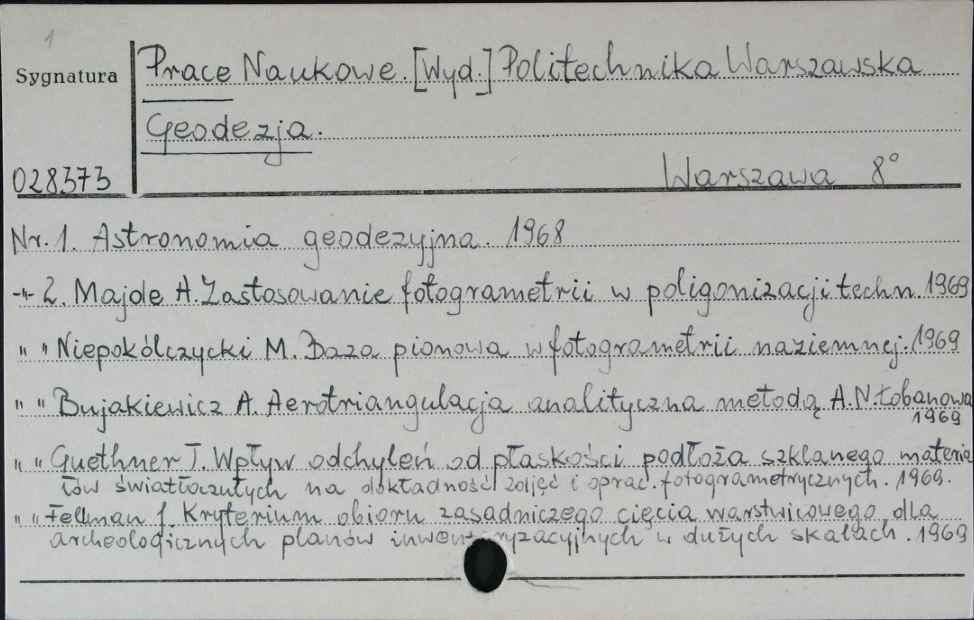 1
Sygnatura
Prace Naukowe. [Wyd.] Politechnika Warszawska
Geodezja.
028373
Warszawa 8°
Nr. 1. Astronomia geodezyjna. 1968
-"- 2. Majde A. Zastosowanie fotogrametrii w poligonizacji techn. 1969
" " Niepokólczycki M. Baza pionowa w fotogrametrii naziemnej. 1969
" " Bujakiewicz A. Aerotriangulacja analityczna metodą A.N. Łobanowa
1969
" " Guethner T. Wpływ odchyleń od płaskości podłoża szklanego materia
łów światłoczułych na dokładność zdjęć i oprac. fotogrametrycznych. 1969.
" " Fellman J. Kryterium obioru zasadniczego cięcia warstwicowego dla
archeologicznych planów inwentaryzacyjnych w dużych skalach. 1969